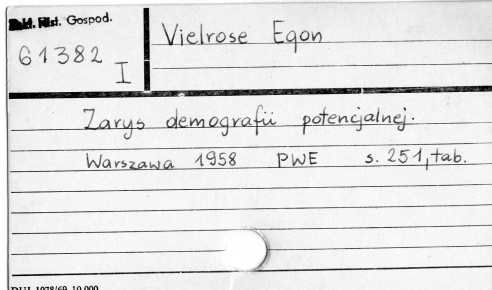 Zakł. Hist. Gospod.
61382
I
Vielrose Egon
Zarys demografii potencjalnej.
Warszawa 1958 PWE s. 251, tab.
1978/69 10.000